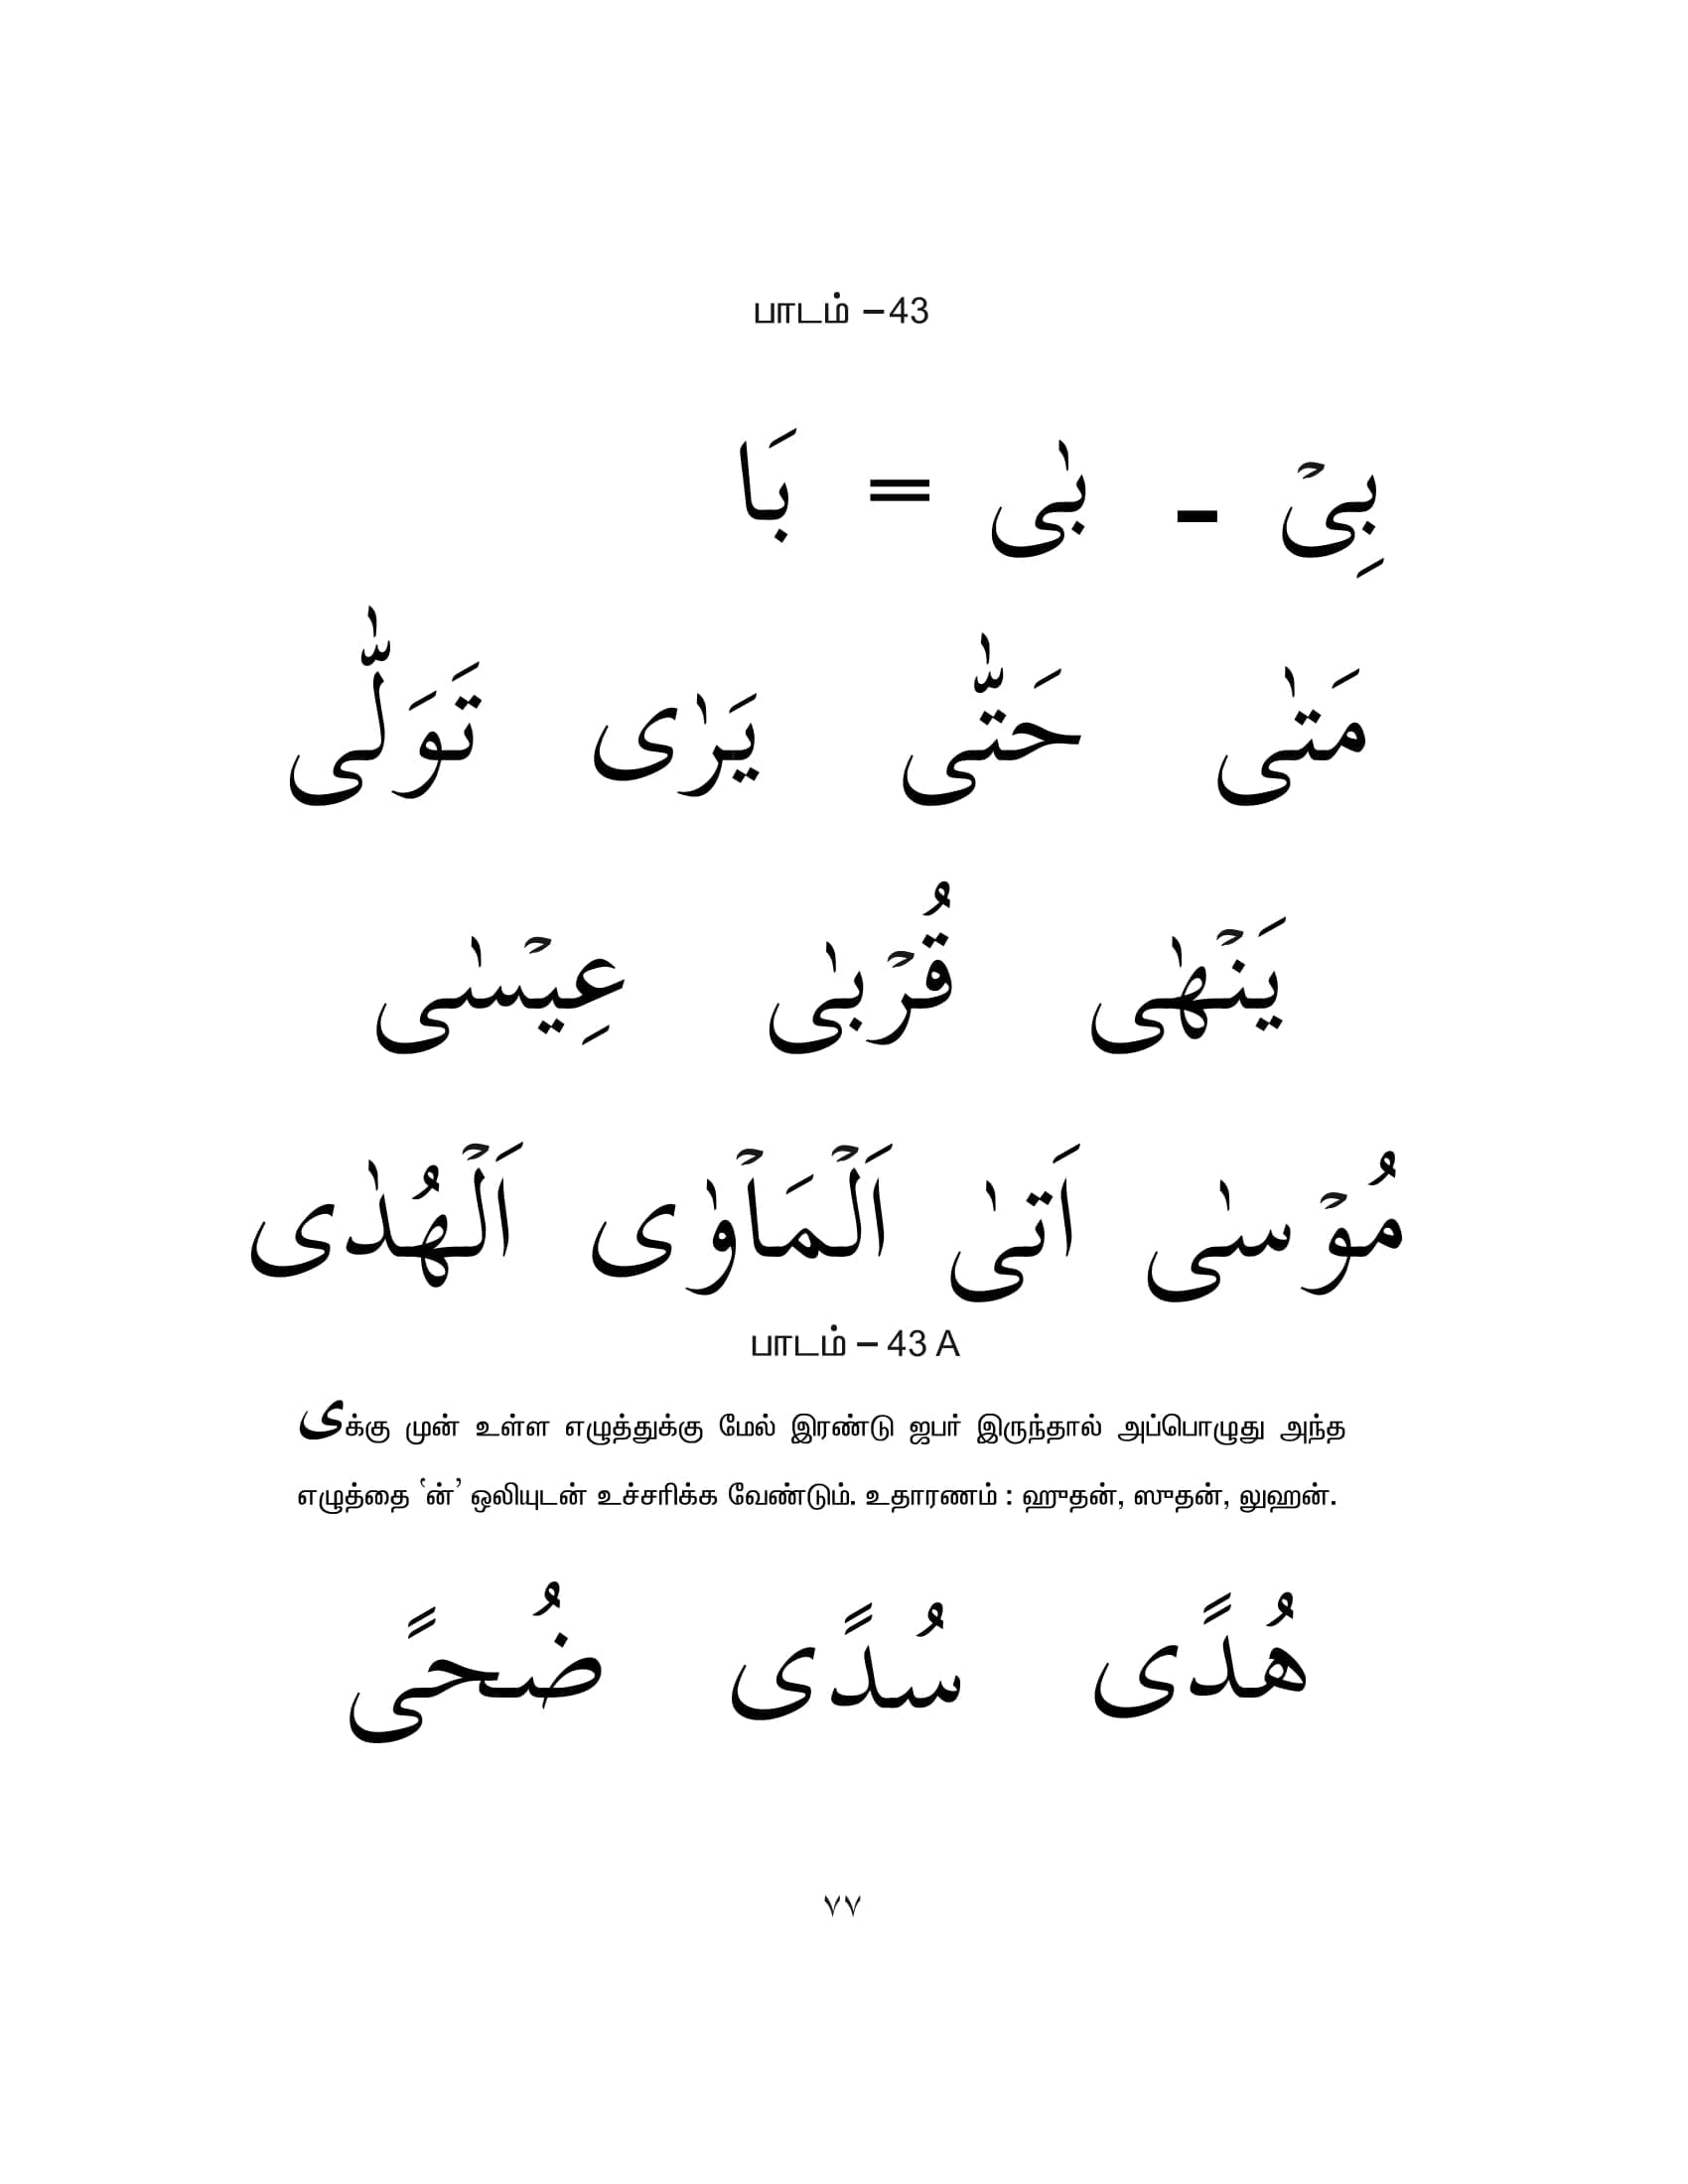 பாடம் – 43
بِىۡ - بٰى = بَا
مَتٰى حَتّٰى يَرٰى تَوَلّٰى
يَنۡهٰى قُرۡبٰى عِيۡسٰى
مُوۡسٰى اَتٰى اَلۡمَاۡوٰى اَلۡهُدٰى
பாடம் – 43 A
ىக்கு முன் உள்ள எழுத்துக்கு மேல் இரண்டு ஜபர் இருந்தால் அப்பொழுது அந்த
எழுத்தை ‘ன்’ ஒலியுடன் உச்சரிக்க வேண்டும். உதாரணம் : ஹுதன், ஸுதன், லுஹன்.
هُدًى سُدًى ضُحًى
٧٧